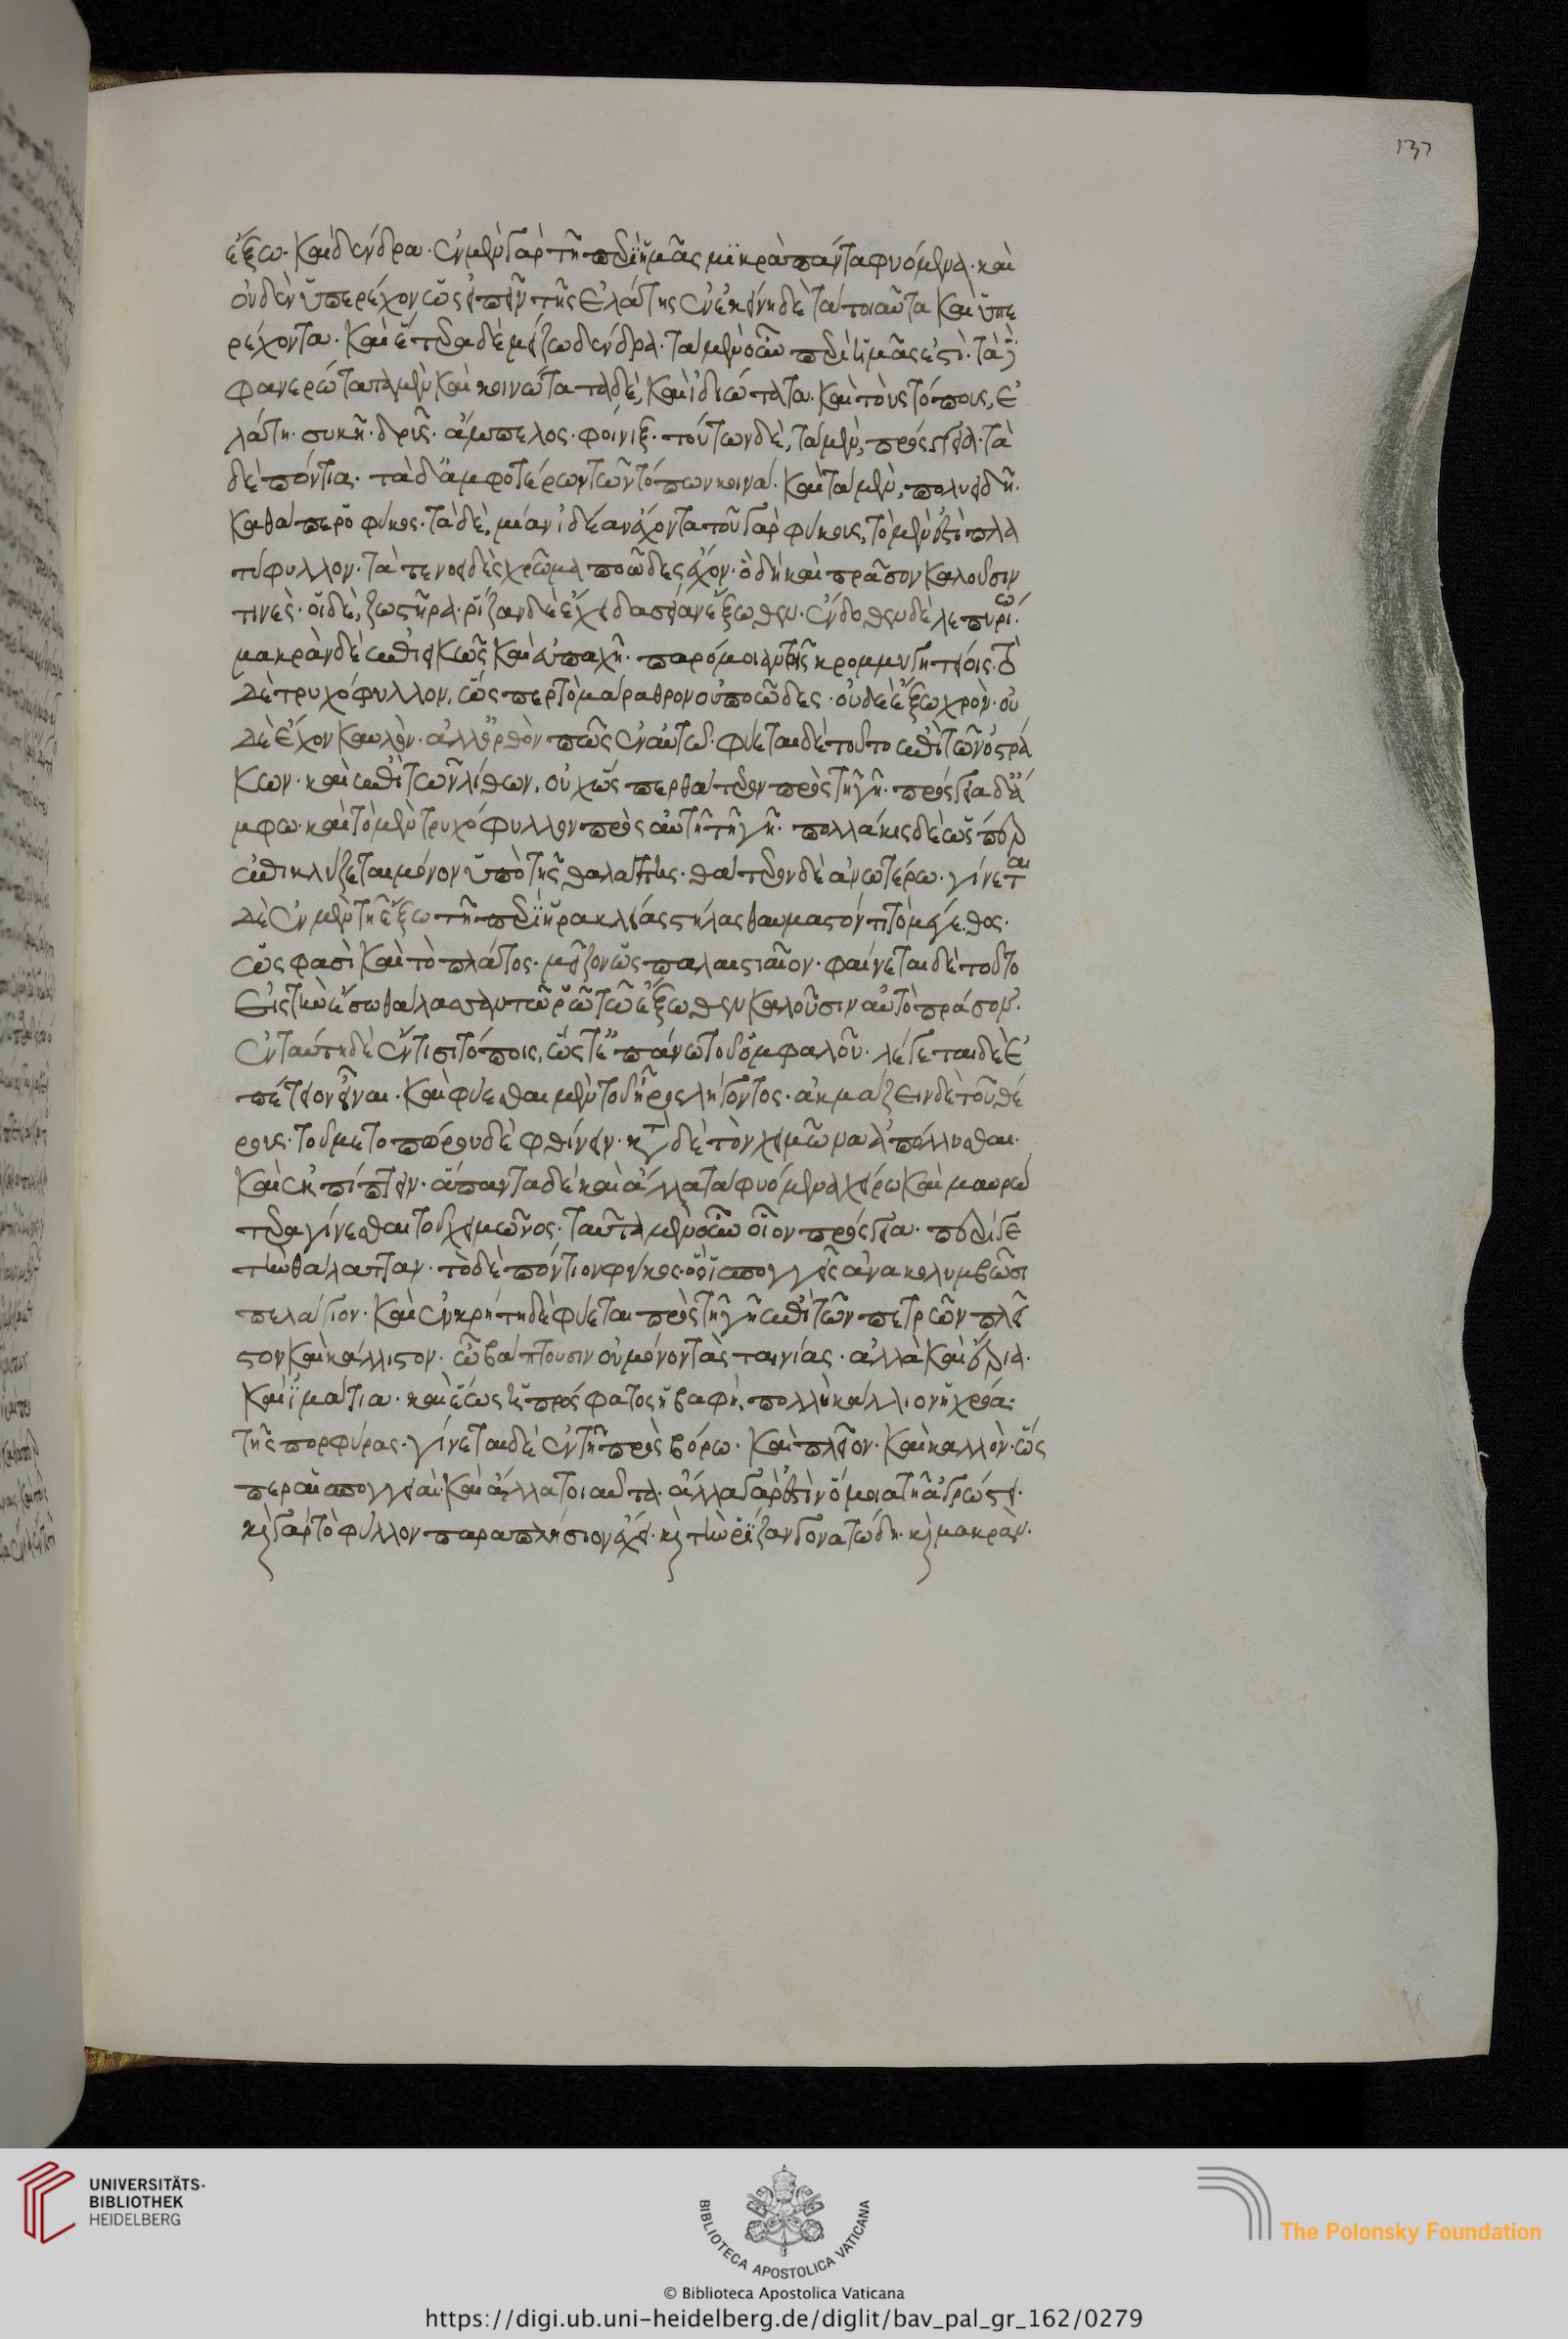 137
ἔξω· καὶ δένδρα· ἐν μὲν γὰρ τῆ περὶ ἡμᾶς μϊκρὰ πάντα φυόμενα· καὶ
οὐδὲν ὑπερέχον ὡς εἰπεῖν τῆς ἐλάτης ἐν ἐκείνη δὲ τὰ τοιαῦτα καὶ ὑπε
ρέχοντα· καὶ ἕτερα δὲ μείζω δένδρα· τὰ μὲν οὖν περὶ ἡμᾶς ἐστὶ· τὰ
φανερώτατα μὲν καὶ κοινώτατα δὲ, καὶ ἰδιώτατα· κατὰ τοὺς τόπους, ἐ
λάτη· συκῆ· δρῦς· ἄμπελος· φοίνιξ· τούτων δὲ, τὰ μὲν, πρόσγεια· τὰ
δὲ πόντια· τὰ δ' ἀμφοτέρων τῶν τόπων κοινά· καὶ τὰ μὲν, πολυειδῆ·
καθάπερ ὁ φύκος· τὰ δὲ, μίαν ἰδέαν ἔχοντα τοῦ γὰρ φύκους, τὸ μὲν ἐστὶ πλα
τύφυλλον· τατενοειδὲς χρῶμα ποῶδες ἔχον· ὃ δὴ καὶ πράσον καλοῦσιν
τινές· οἱ δὲ, ζωστῆρα· ῥίζαν δὲ ἔχει δασεῖαν ἔξωθεν· ἔνδοθεν δὲ λεπυριώ
μακρὰν δὲ ἐπιεικῶς καὶ εὐπαχῆ· παρόμοιαν τοῖς κρομμυγητείοις· τὸ
δὲ τρυχόφυλλον, ὥσπερ τὸ μάραθρον οὐ ποῶδες· οὐδὲ ἔξωχρον· οὐ
δὲ ἔχον καυλὸν· ἀλλ' ὀρθόν πως ἐν αὑτῶ· φύεται δὲ τοῦτο ἐπὶ τῶν ὀστρά
κων· καὶ ἐπὶ τῶν λίθων, οὐχ ὥσπερ θάτερον πρὸς τῆ γῆ· πρόσγεια δ' ἄ
μφω· καὶ τὸ μὲν τρυχόφυλλον πρὸς αὐτῆ τῆ γῆ· πολλάκις δὲ ὥσπερ
ἐπικλύζεται μόνον ὑπὸ τῆς θαλάττης· θάτερον δὲ ἀνωτέρω· γίνεται
δὲ ἐν μὲν τῆ ἔξω τῆ περὶ ἡρακλείας στήλας θαυμαστόν τι τὸ μέγεθος·
ὥς φασὶ καὶ τὸ πλάτος· μεῖζον ὡς παλαιστιαῖον· φαίνεται δὲ τοῦτο
εἰς τὴν ἔσω θάλατταν τῶ ῥῶ τῶ ἔξωθεν καλοῦσιν αὐτὸ πράσον·
ἐν ταύτη δὲ ἔν τισι τόποις, ὥστ' ἐπάνω τοῦ ὀμφαλοῦ· λέγεται δὲ ἐ
πέτειον εἶναι· καὶ φύεσθαι μὲν τοῦ ἦρος λήγοντος· ἀκμάζειν δὲ τοῦ θέ
ρους· τοῦ μετοπώρου δὲ φθίνειν· κατὰ δὲ τὸν χειμῶνα ἀπόλλυσθαι·
καὶ ἐκπίπτειν· ἅπαντα δὲ καὶ ἄλλα τὰ φυόμενα χείρω καὶ μαυρώ
τερα γίνεσθαι τοῦ χειμῶνος· ταῦτα μὲν οὖν οἷον πρόσγεια· περί γε
τὴν θάλατταν· τὸ δὲ πόντιον φύκος· ὃ οἱ σπογγεῖς ἀνακολυμβῶσι
πελάγιον· καὶ ἐν κρήτη δὲ φύεται πρὸς τῆ γῆ ἐπὶ τῶν πετρῶν πλεῖ
στον καὶ κάλλιστον· ὧ βάπτουσιν οὐ μόνον τὰς ταινίας· ἀλλὰ καὶ ἔρια·
καὶ ἱμάτια· καὶ ἕως ἦ πρόσφατος ἡ βαφὴ, πολλὴ καλλίον ἡ χρόα·
τῆς πορφύρας· γίνεται δὲ ἐν τῆ πρὸς βόρω· καὶ πλεῖον· καὶ καλλὸν· ὥσ
περ αἱ σπογγειαί· καὶ ἄλλα τοιαῦτα· ἄλλα γὰρ ἐστὶν ὅμοια τῆ ἀγρώστει·
καὶ γὰρ τὸ φύλλον παραπλήσιον ἔχει· καὶ τὴν ῥίζαν γονατώδη· καὶ μακρὰν·
UNIVERSITÄTS-
BIBLIOTHEK
HEIDELBERG
BIBLIOTECA APOSTOLICA VATICANA
The Polonsky Foundation
© Biblioteca Apostolica Vaticana
https://digi.ub.uni-heidelberg.de/diglit/bav_pal_gr_162/0279